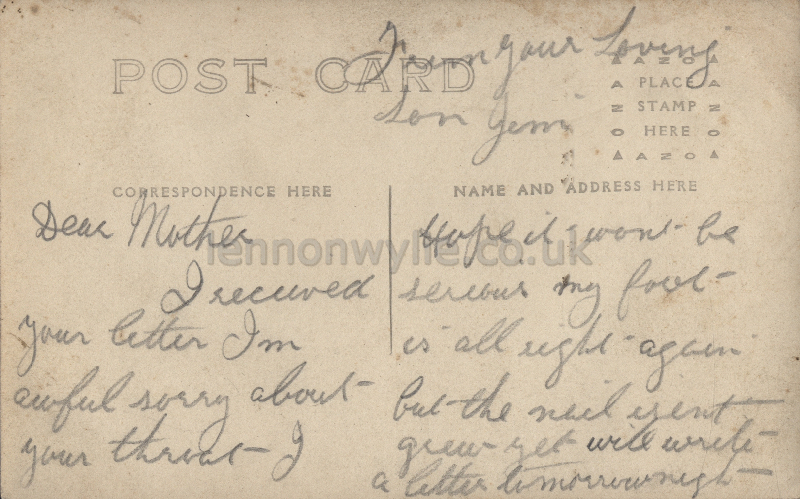 From your Loving
Son Jem
POST CARD
AZO
PLACE
STAMP
HERE
AZO
CORRESPONDENCE HERE
NAME AND ADDRESS HERE
Dear Mother
I received
your letter Im
awful sorry about
your throat I
hope it wont be
serious my foot
is all right again
but the nail isent
grew yet will write
a letter tomorrow night
lennonwylie.co.uk